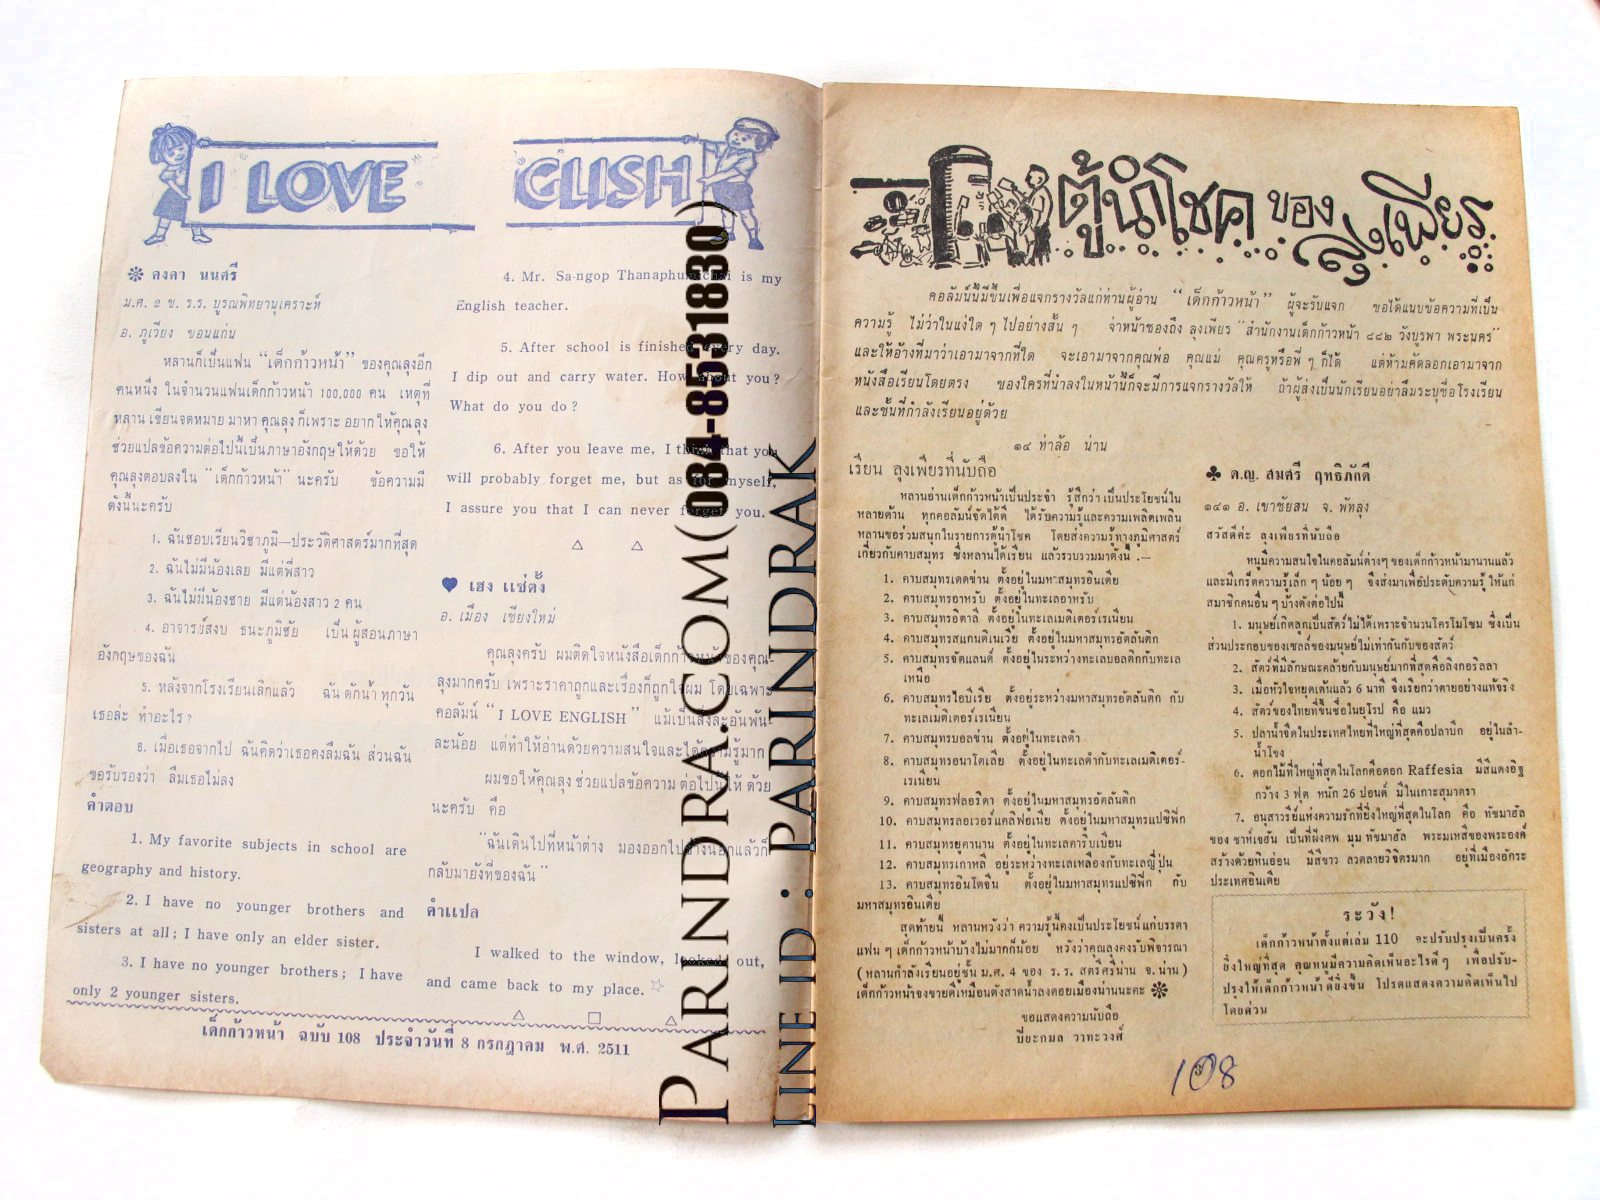 I LOVE GLISH
❇ ดงดา นนศรี
ม.ศ. ๑ ข. ร.ร. บูรณพิทยานุเคราะห์
อ. ภูเวียง ขอนแก่น
หลานก็เป็นแฟน “เด็กก้าวหน้า” ของคุณลุงอีก
คนหนึ่ง ในจำนวนแฟนเด็กก้าวหน้า 100,000 คน เหตุที่
หลานเขียนจดหมายมาหาคุณลุงก็เพราะอยากให้คุณลุง
ช่วยแปลข้อความต่อไปนี้เป็นภาษาอังกฤษให้ด้วย ขอให้
คุณลุงตอบลงใน “เด็กก้าวหน้า” นะครับ ข้อความมี
ดังนี้นะครับ
1. ฉันชอบเรียนวิชาภูมิ—ประวัติศาสตร์มากที่สุด
2. ฉันไม่มีน้องเลย มีแต่พี่สาว
3. ฉันไม่มีน้องชาย มีแต่น้องสาว 2 คน
4. อาจารย์สงบ ธนะภูมิชัย เป็นผู้สอนภาษา
อังกฤษของฉัน
5. หลังจากโรงเรียนเลิกแล้ว ฉันตักน้ำทุกวัน
เธอล่ะ ทำอะไร?
6. เมื่อเธอจากไป ฉันคิดว่าเธอคงลืมฉัน ส่วนฉัน
ขอรับรองว่า ลืมเธอไม่ลง
คำตอบ
1. My favorite subjects in school are
geography and history.
2. I have no younger brothers and
sisters at all; I have only an elder sister.
3. I have no younger brothers; I have
only 2 younger sisters.
4. Mr. Sa-ngop Thanaphumichai is my
English teacher.
5. After school is finished every day.
I dip out and carry water. How about you?
What do you do?
6. After you leave me, I think that you
will probably forget me, but as for myself,
I assure you that I can never forget you.
♥ เฮง แซ่ตั้ง
อ. เมือง เชียงใหม่
คุณลุงครับ ผมติดใจหนังสือเด็กก้าวหน้าของคุณ-
ลุงมากครับ เพราะราคาถูกและเรื่องก็ถูกใจผม โดยเฉพาะ
คอลัมน์ “I LOVE ENGLISH” แม้เป็นสิ่งละอันพัน-
ละน้อย แต่ทำให้อ่านด้วยความสนใจและได้ความรู้มาก
ผมขอให้คุณลุงช่วยแปลข้อความต่อไปนี้ให้ด้วย
นะครับ คือ
“ฉันเดินไปที่หน้าต่าง มองออกไปข้างนอกแล้วก็
กลับมายังที่ของฉัน”
คำแปล
I walked to the window, looked out,
and came back to my place. ☆
เด็กก้าวหน้า ฉบับ 108 ประจำวันที่ 8 กรกฎาคม พ.ศ. 2511
PARINDRA.COM(084-8531830)
LINE ID : PARINDRAK
ตู้นำโชคของลุงเพียร
คอลัมน์นี้มีขึ้นเพื่อแจกรางวัลแก่ท่านผู้อ่าน “เด็กก้าวหน้า” ผู้จะรับแจก ขอได้แนบข้อความที่เป็น
ความรู้ ไม่ว่าในแง่ใด ๆ ไปอย่างสั้น ๆ จ่าหน้าซองถึง ลุงเพียร “สำนักงานเด็กก้าวหน้า ๘๘๒ วังบูรพา พระนคร”
และให้อ้างที่มาว่าเอามาจากที่ใด จะเอามาจากคุณพ่อ คุณแม่ คุณครูหรือพี่ ๆ ก็ได้ แต่ห้ามคัดลอกเอามาจาก
หนังสือเรียนโดยตรง ของใครที่นำลงในหน้านี้ก็จะมีการแจกรางวัลให้ ถ้าผู้ส่งเป็นนักเรียนอย่าลืมระบุชื่อโรงเรียน
และชั้นที่กำลังเรียนอยู่ด้วย
๑๔ ท่าล้อ น่าน
เรียน ลุงเพียรที่นับถือ
หลานอ่านเด็กก้าวหน้าเป็นประจำ รู้สึกว่าเป็นประโยชน์ใน
หลายด้าน ทุกคอลัมน์จัดได้ดี ได้รับความรู้และความเพลิดเพลิน
หลานขอร่วมสนุกในรายการตู้นำโชค โดยส่งความรู้ทางภูมิศาสตร์
เกี่ยวกับคาบสมุทร ซึ่งหลานได้เรียน แล้วรวบรวมมาดังนี้ .—
1. คาบสมุทรเดคข่าน ตั้งอยู่ในมหาสมุทรอินเดีย
2. คาบสมุทรอาหรับ ตั้งอยู่ในทะเลอาหรับ
3. คาบสมุทรอิตาลี ตั้งอยู่ในทะเลเมดิเตอร์เรเนียน
4. คาบสมุทรสแกนดิเนเวีย ตั้งอยู่ในมหาสมุทรอัตลันติก
5. คาบสมุทรจัตแลนด์ ตั้งอยู่ในระหว่างทะเลบอลติกกับทะเล
เหนือ
6. คาบสมุทรไอบีเรีย ตั้งอยู่ระหว่างมหาสมุทรอัตลันติก กับ
ทะเลเมดิเตอร์เรเนียน
7. คาบสมุทรบอลข่าน ตั้งอยู่ในทะเลดำ
8. คาบสมุทรอนาโตเลีย ตั้งอยู่ในทะเลดำกับทะเลเมดิเตอร์-
เรเนียน
9. คาบสมุทรฟลอริดา ตั้งอยู่ในมหาสมุทรอัตลันติก
10. คาบสมุทรลอเวอร์แคลิฟอเนีย ตั้งอยู่ในมหาสมุทรแปซิฟิก
11. คาบสมุทรยูคานาน ตั้งอยู่ในทะเลคาริบเบียน
12. คาบสมุทรเกาหลี อยู่ระหว่างทะเลเหลืองกับทะเลญี่ปุ่น
13. คาบสมุทรอินโดจีน ตั้งอยู่ในมหาสมุทรแปซิฟิก กับ
มหาสมุทรอินเดีย
สุดท้ายนี้ หลานหวังว่า ความรู้นี้คงเป็นประโยชน์แก่บรรดา
แฟน ๆ เด็กก้าวหน้าบ้างไม่มากก็น้อย หวังว่าคุณลุงคงรับพิจารณา
(หลานกำลังเรียนอยู่ชั้น ม.ศ. 4 ของ ร.ร. สตรีศรีน่าน จ.น่าน)
เด็กก้าวหน้าจงขายดีเหมือนดังสาดน้ำลงดอยเมืองน่านนะคะ ❇
ขอแสดงความนับถือ
ปิยะกมล วาทะวงศ์
♣ ด.ญ. สมศรี ฤทธิภักดี
๑๔๑ อ. เขาชัยสน จ. พัทลุง
สวัสดีค่ะ ลุงเพียรที่นับถือ
หนูมีความสนใจในคอลัมน์ต่างๆ ของเด็กก้าวหน้ามานานแล้ว
และมีเกร็ดความรู้เล็ก ๆ น้อย ๆ จึงส่งมาเพื่อประดับความรู้ให้แก่
สมาชิกคนอื่น ๆ บ้างดังต่อไปนี้
1. มนุษย์เกิดลูกเป็นสัตว์ไม่ได้เพราะจำนวนโครโมโซม ซึ่งเป็น
ส่วนประกอบของเซลล์ของมนุษย์ไม่เท่ากันกับของสัตว์
2. สัตว์ที่มีลักษณะคล้ายกับมนุษย์มากที่สุดคือลิงกอริลลา
3. เมื่อหัวใจหยุดเต้นแล้ว 6 นาที จึงเรียกว่าตายอย่างแท้จริง
4. สัตว์ของไทยที่ขึ้นชื่อในยุโรป คือ แมว
5. ปลาน้ำจืดในประเทศไทยที่ใหญ่ที่สุดคือปลาบึก อยู่ในลำ-
น้ำโขง
6. ดอกไม้ที่ใหญ่ที่สุดในโลกคือดอก Raffesia มีสีแดงอิฐ
กว้าง 3 ฟุต หนัก 26 ปอนด์ มีในเกาะสุมาตรา
7. อนุสาวรีย์แห่งความรักที่ยิ่งใหญ่ที่สุดในโลก คือ ทัชมาฮัล
ของ ชาห์เจฮัน เป็นที่ฝังศพ มุม ทัชมาฮัล พระมเหสีของพระองค์
สร้างด้วยหินอ่อน มีสีขาว ลวดลายวิจิตรมาก อยู่ที่เมืองอักระ
ประเทศอินเดีย
ระวัง!
เด็กก้าวหน้าตั้งแต่เล่ม 110 จะปรับปรุงเป็นครั้ง
ยิ่งใหญ่ที่สุด คุณหนูมีความคิดเห็นอะไรดีๆ เพื่อปรับ-
ปรุงให้เด็กก้าวหน้าดียิ่งขึ้น โปรดแสดงความคิดเห็นไป
โดยด่วน
108